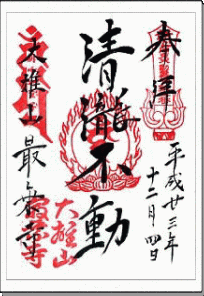 奉拝
平成廿三年
十二月四日
清瀧不動
大雄山
最乗寺
大雄山
最乗寺